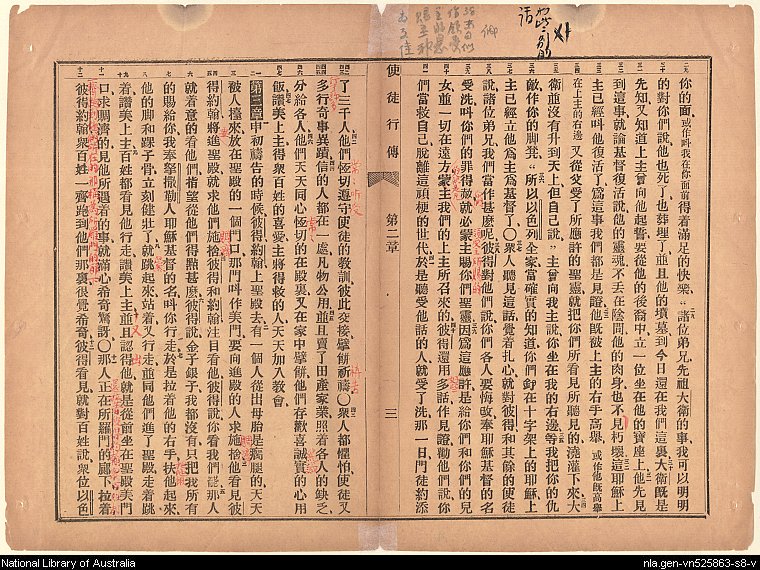 你的面或作叫我在你面前得着滿足的快樂諸位弟兄先祖大衛的事我可以明明
的對你們說他也死了也葬埋了並且他的墳墓到今日還在我們這裏大衛旣是
先知又知道上主曾向他起誓要從他的後裔中立一位坐在他的寶座上他先見
到這事就論基督復活說他的靈魂不丟在陰間他的肉身也不見朽壞這耶穌上
主已經叫他復活了爲這事我們都是見證他旣被上主的右手高舉或作他旣高舉
在上主的右邊又從父受了所應許的聖靈就把你們所看見所聽見的澆灌下來大
衛並沒有升到天上但自己說主曾向我主說你坐在我的右邊等我把你的仇
敵作你的脚凳所以以色列全家當確實的知道你們釘在十字架上的耶穌上
主已經立他爲主爲基督了〇衆人聽見這話覺着扎心就對彼得和其餘的使徒
說諸位弟兄我們當作甚麼呢彼得對他們說你們各人要悔改奉耶穌基督的名
受洗叫你們的罪得赦就必蒙主賜你們聖靈因爲這應許是給你們和你們的兒
女並一切在遠方蒙主我們的上主所召來的彼得還用多話作見證勸勉他們說你
們當救自己脫離這頑梗的世代於是聽受他話的人就受了洗那一日門徒約添
使徒行傳 第二章 三
了三千人他們恆切遵守使徒的教訓彼此交接擘餅祈禱〇衆人都懼怕使徒又
多行奇事異蹟信的人都在一處凡物公用並且賣了田產家業照着各人的缺乏
分給各人他們天天同心恆切的在殿裏又在家中擘餅他們存歡喜誠實的心用
飯讚美上主得衆百姓的喜愛主將得救的人天天加入教會
第三章申初禱吿的時候彼得約翰上聖殿去有一個人從出母胎是瘸腿的天天
被人擡來放在聖殿的一個門口那門叫作美門要向進殿的人求施捨他看見彼
得約翰將進聖殿就求他們施捨彼得和約翰注目看他彼得說你看我們罷那人
就着意的看他們指望從他們得點甚麼彼得說金子銀子我都沒有只把我所有
的賜給你我奉拏撒勒人耶穌基督的名叫你行走於是拉着他的右手扶他起來
他的脚和踝子骨立刻健壯了就跳起來站着又行走並同他們進了聖殿走着跳
着讚美上主百姓都看見他行走讚美上主並且認得他就是從前坐在聖殿美門
口求賙濟的見他所遇着的事就滿心希奇驚訝〇那人正在所羅門的廊下拉着
彼得約翰衆百姓一齊跑到他們那裏很覺希奇彼得看見就對百姓說衆位以色
National Library of Australia
nla.gen-vn525863-s8-v